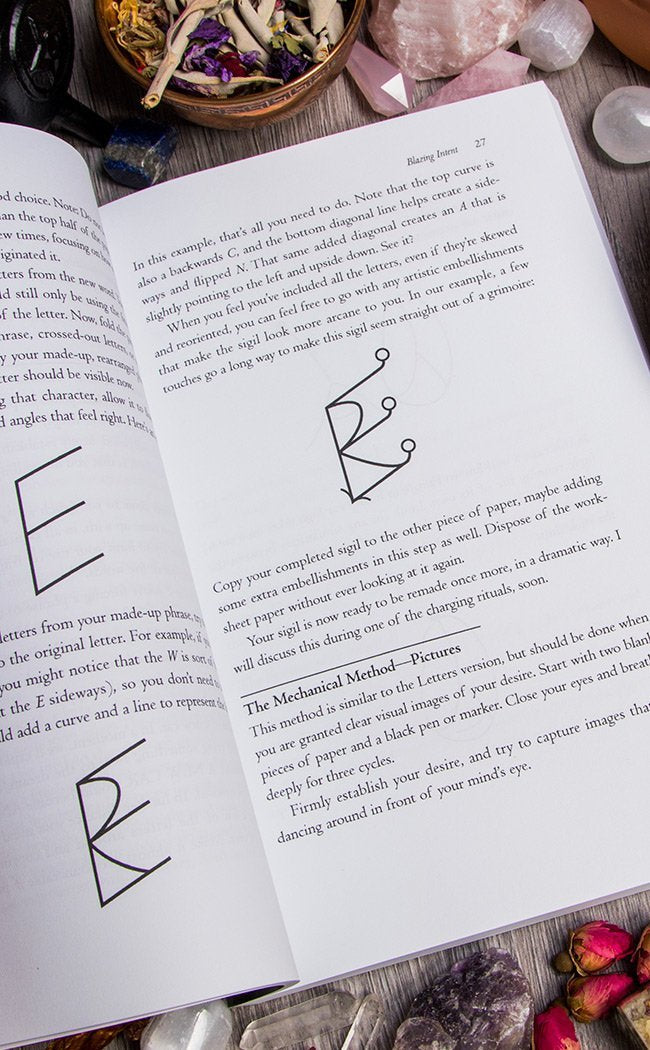 od choice. Note: Do
an the top half of the
ew times, focusing on
iginated it.
tters from the new word
ld still only be using the
of the letter. Now, fold the
hrase, crossed-out letters,
y your made-up, rearranged
tter should be visible now.
g that character, allow it to
d angles that feel right. Here's
E
letters from your made-up phrase,
o the original letter. For example, if
you might notice that the W is sort of
t the E sideways), so you don't need
ld add a curve and a line to represent the
Blazing Intent 27
In this example, that's all you need to do. Note that the top curve is
also a backwards C, and the bottom diagonal line helps create a side-
ways and flipped N. That same added diagonal creates an A that is
slightly pointing to the left and upside down. See it?
When you feel you've included all the letters, even if they're skewed
and reoriented, you can feel free to go with any artistic embellishments
that make the sigil look more arcane to you. In our example, a few
touches go a long way to make this sigil seem straight out of a grimoire:
Copy your completed sigil to the other piece of paper, maybe adding
some extra embellishments in this step as well. Dispose of the work-
sheet paper without ever looking at it again.
Your sigil is now ready to be remade once more, in a dramatic way. I
will discuss this during one of the charging rituals, soon.
The Mechanical Method—Pictures
This method is similar to the Letters version, but should be done when
you are granted clear visual images of your desire. Start with two blank
pieces of paper and a black pen or marker. Close your eyes and breath
deeply for three cycles.
Firmly establish your desire, and try to capture images that
dancing around in front of your mind's eye.